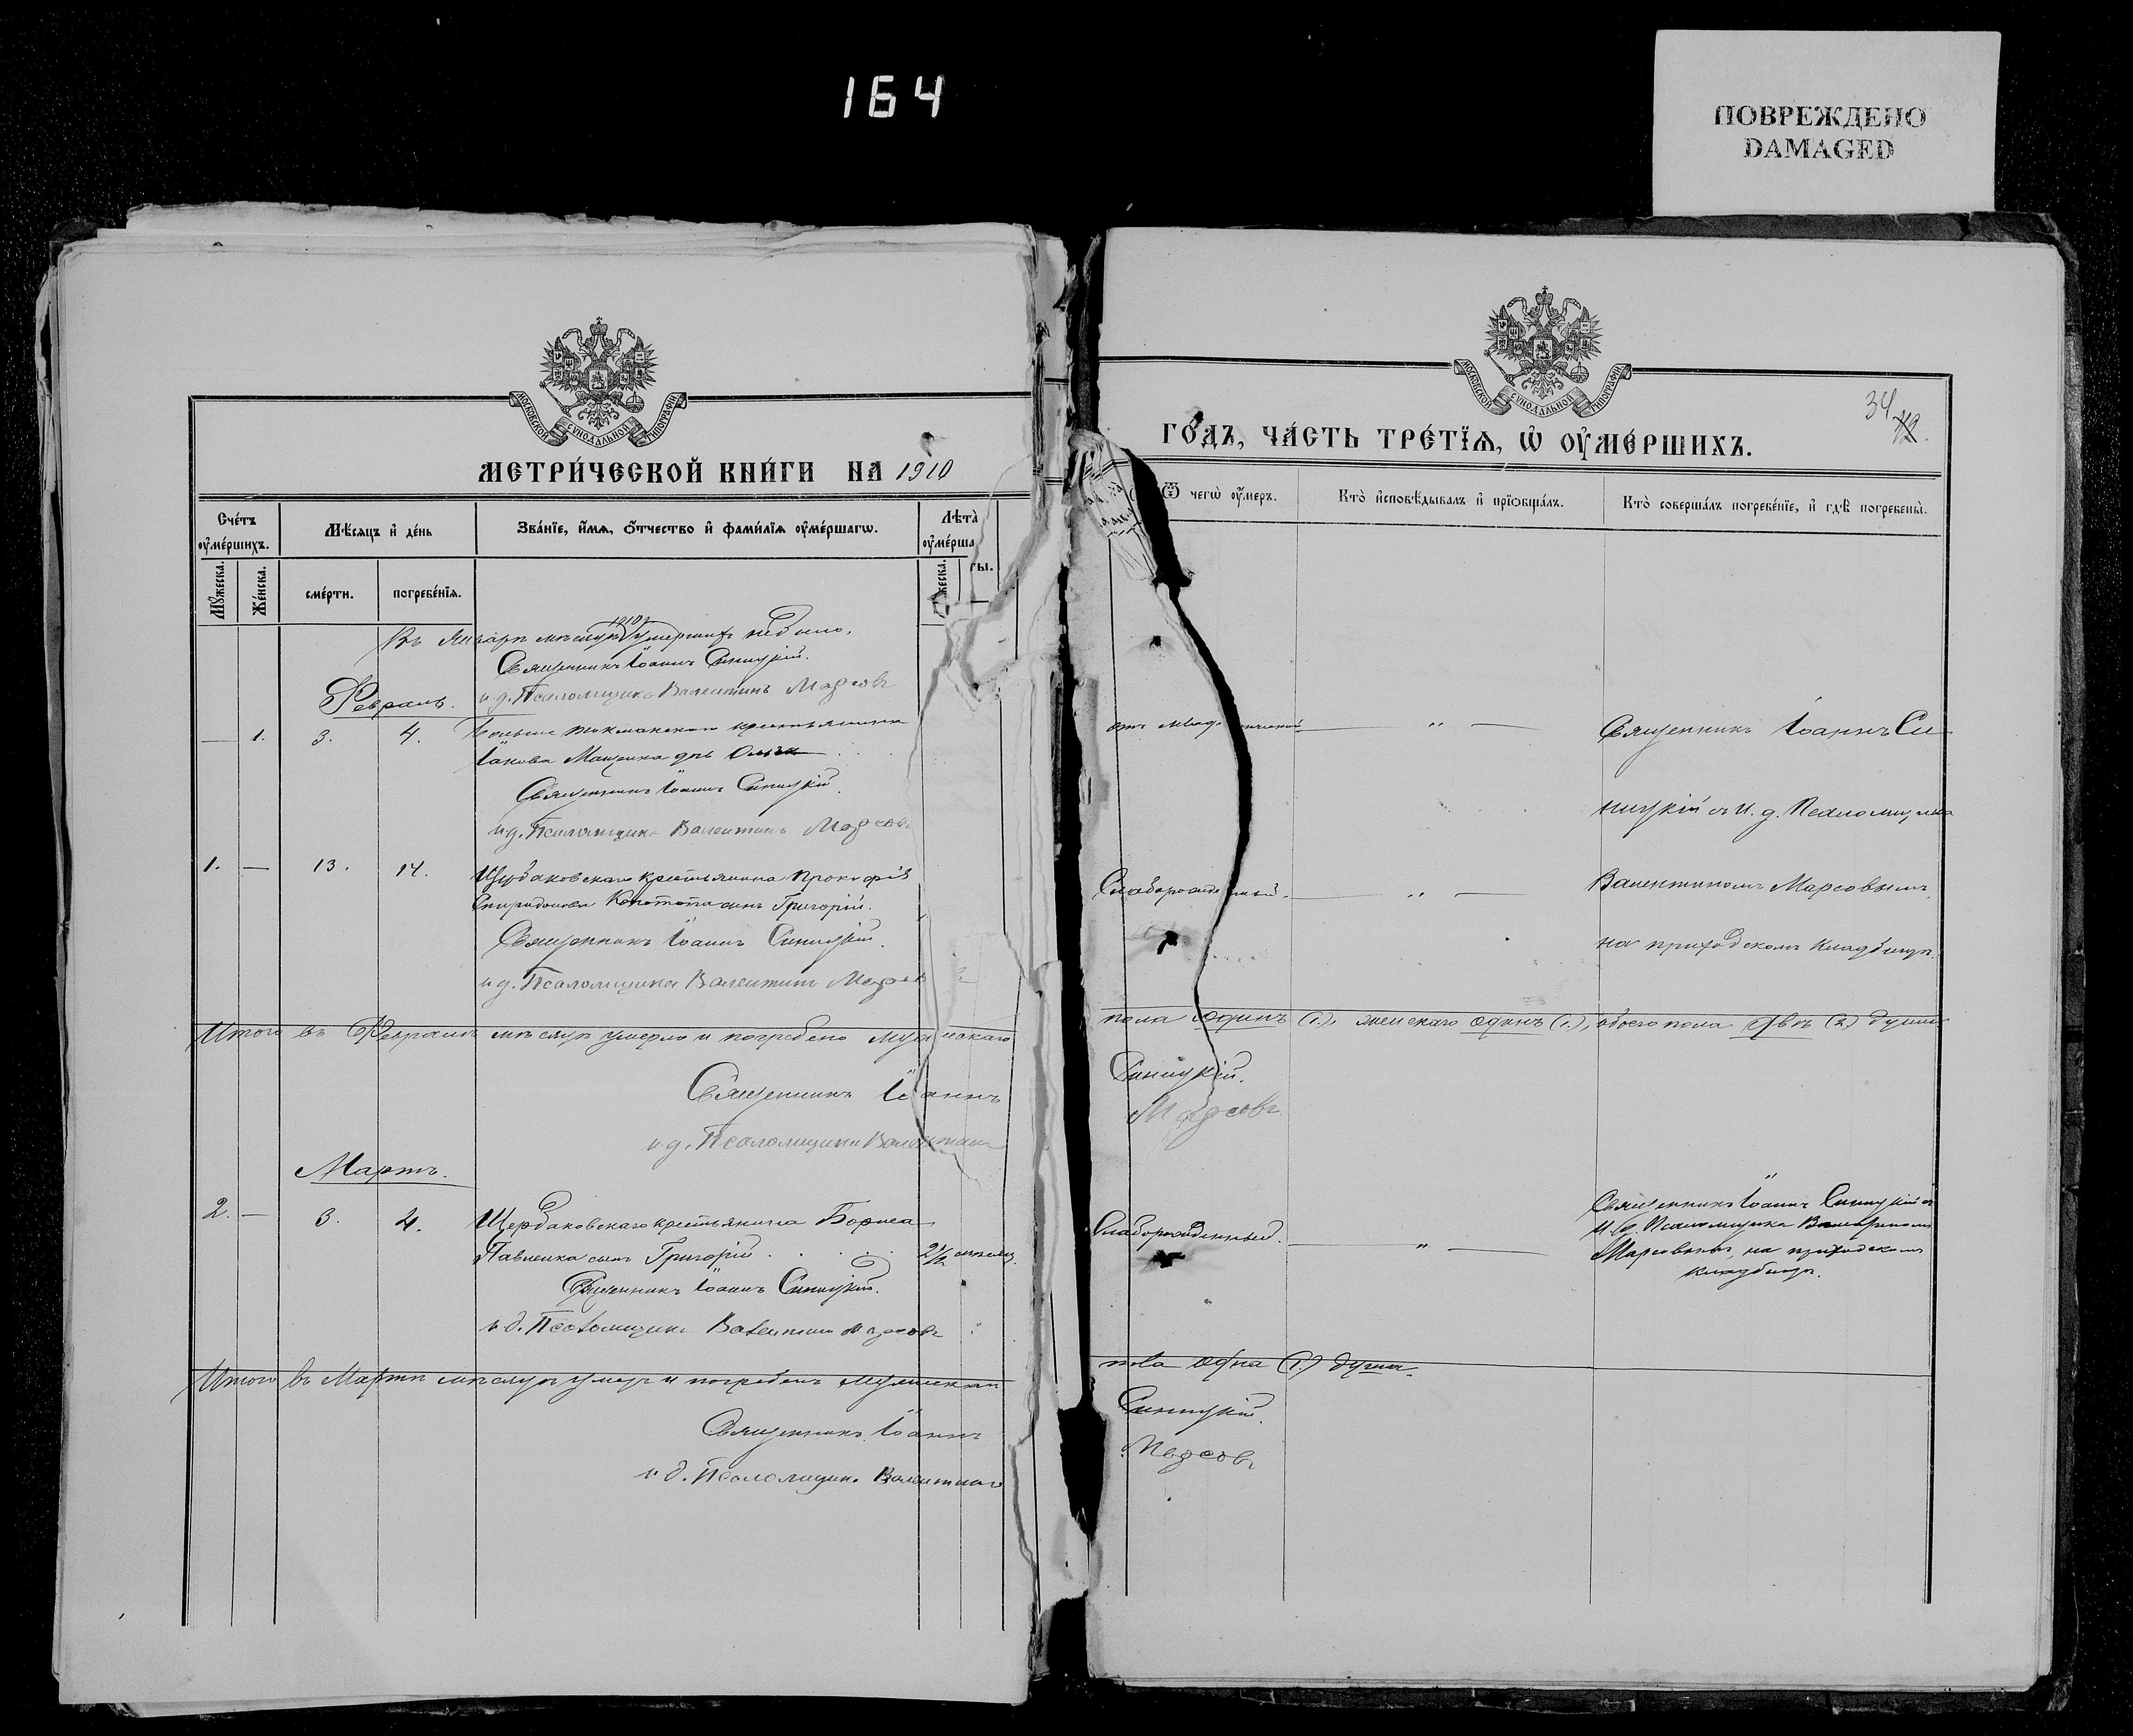 164
ПОВРЕЖДЕНО
DAMAGED
МОСКОВСКОЙ СѴНОДАЛЬНОЙ ТИПОГРАФІИ
МЕТРИ́ЧЕСКОЙ КНИ́ГИ НА 1910
Сче́тъ оу҆ме́ршихъ.
Мѣ́сяцъ и҆ де́нь
Зва́нїе, и҆́мѧ, ѻ҆́тчество и҆ фами́лїѧ оу҆ме́ршагѡ.
Лѣ́та̀ оу҆ме́рша
гы.
Мꙋ́жеска.
Же́нска.
сме́рти.
погребе́нїѧ.
Въ Январѣ мѣсяцѣ 1910 г. умершихъ не было.
Священникъ Іоаннъ Синицкій.
и д. Псаломщика Валентинъ Марсовъ
Февраль.
— 1. 3. 4. Больше токмакскаго крестьянина
Іакова Мащенка дчь
Священникъ Іоаннъ Синицкій.
и д. Псаломщика Валентинъ Марсовъ
1. — 13. 14. Щербаковскаго крестьянина Прокофія
Спиридонова сынъ Григорій.
Священникъ Іоаннъ Синицкій.
и д. Псаломщика Валентинъ Марсовъ
Итого въ Февралѣ мѣсяцѣ умерло и погребено мужескаго
Священникъ Іоаннъ
и д. Псаломщика Валентинъ
Мартъ.
2. — 3. 4. Щербаковскаго крестьянина Бориса
Павленка сынъ Григорій 2½ мѣсяц.
Священникъ Іоаннъ Синицкій.
и д. Псаломщика Валентинъ Марсовъ
Итого въ Мартѣ мѣсяцѣ умеръ и погребенъ мужескаго
Священникъ Іоаннъ
и д. Псаломщика Валентинъ
МОСКОВСКОЙ СѴНОДАЛЬНОЙ ТИПОГРАФІИ
34
ГО́ДЪ, ЧА́СТЬ ТРЕ́ТЇѦ, Ѡ҆ ОУ҆МЕ́РШИХЪ.
Ѿ чегѡ̀ оу҆́меръ.
Кто̀ и҆сповѣ́дывалъ и҆ прїѡбща́лъ.
Кто̀ соверша́лъ погребе́нїе, и҆ гдѣ̀ погребены̀.
отъ — " — Священникъ Іоаннъ Си-
ницкій съ и. д. Псаломщика
Слаборожденный. — " — Валентиномъ Марсовымъ
на приходскомъ кладбищѣ.
пола одинъ (1.), женскаго одинъ (1.), обоего пола двѣ (2) души
Синицкій.
Марсовъ
Слаборожденный. — " — Священникъ Іоаннъ Синицкій съ
и. д. Псаломщика Валентиномъ
Марсовымъ, на приходскомъ
кладбищѣ.
пола одна (1.) душа.
Синицкій.
Марсовъ